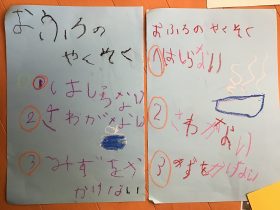 おふろの
やくそく
①はしらない
②さわがない
③みずをを
かけない
おふろのやくそく
①はしらない
②さわがない
③みずをかけない